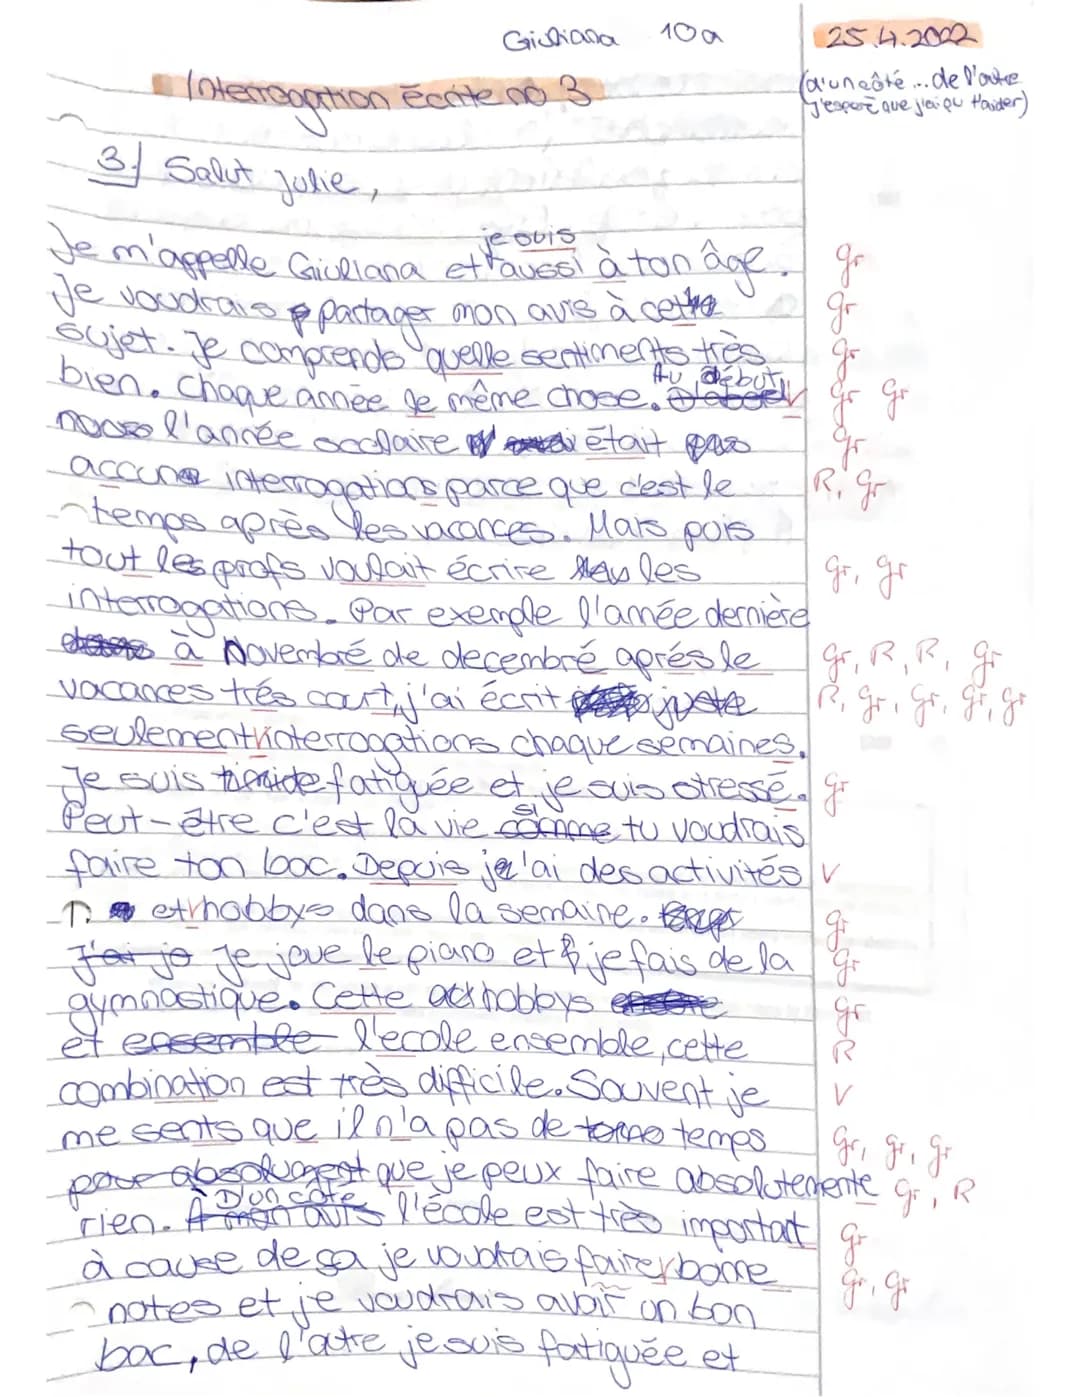 Giuliana 10a
25.4.2022
Interrogation écrite no 3
(d'un côté ... de l'autre
j'espère que j'ai pu t'aider)
3.) Salut Julie,
je suis
Je m'appelle Giuliana et aussi à ton âge. gr
Je voudrais partager mon avis à cette gr
sujet. Je comprends quelle sentiments très gr
Au début
bien. Chaque année le même chose. gr gr
l'année scolaire était pas gr
accune interrogations parce que c'est le R, gr
temps après les vacances. Mais puis
tout les profs voulait écrire les gr, gr
interrogations. Par exemple l'année dernière
à Novembré de decembré aprés le gr, R, R, gr
vacances trés court, j'ai écrit juste R, gr, gr, gr, gr
seulement interrogations chaque semaines.
Je suis fatiguée et je suis stressé. gr
si
Peut-être c'est la vie comme tu voudrais
faire ton bac. Depuis je'ai des activités V
et hobbys dans la semaine. gr
J'ai je Je joue le piano et je fais de la gr
gymnastique. Cette hobbys gr
et ensemble l'ecole ensemble, cette R
combination est très difficile. Souvent je V
me sents que il n'a pas de temps gr, gr, gr
pour absolument que je peux faire absolutemente gr, R
D'un côté
rien. À mon avis l'école est très important gr
à cause de sa je voudrais faire bonne gr, gr
notes et je voudrais avoir un bon
bac, de l'autre je suis fatiguée et